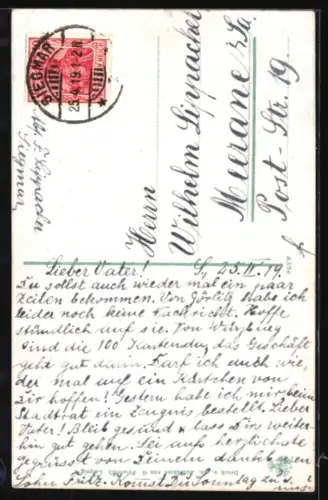 SIEGMAR
25.4.19.1-2N
DEUTSCHES REICH
Abs. F. Lippacher
Siegmar
Herrn
Wilhelm Lippacher
Meerane i/Sa.
Post-Str. 19
Lieber Vater! S., 25. IV. 19.
Du sollst auch wieder mal ein paar
Zeilen bekommen. Von Görlitz habe ich
leider noch keine Nachricht. Hoffe
stündlich auf sie. Von Würzburg
sind die 100 Karten da, das Geschäft
geht gut darin. Darf ich auch wie-
der mal auf ein Kästchen von
Dir hoffen? Gestern habe ich mir beim
Stadtrat ein Zeugnis bestellt. Lieber
Vater! Bleib gesund & lass Dirs weiter-
hin gut gehen. Sei auch herzlichst
gegrüsst von Deinem dankbaren
Sohn Fritz. Kommst Du Sonntag zu uns?